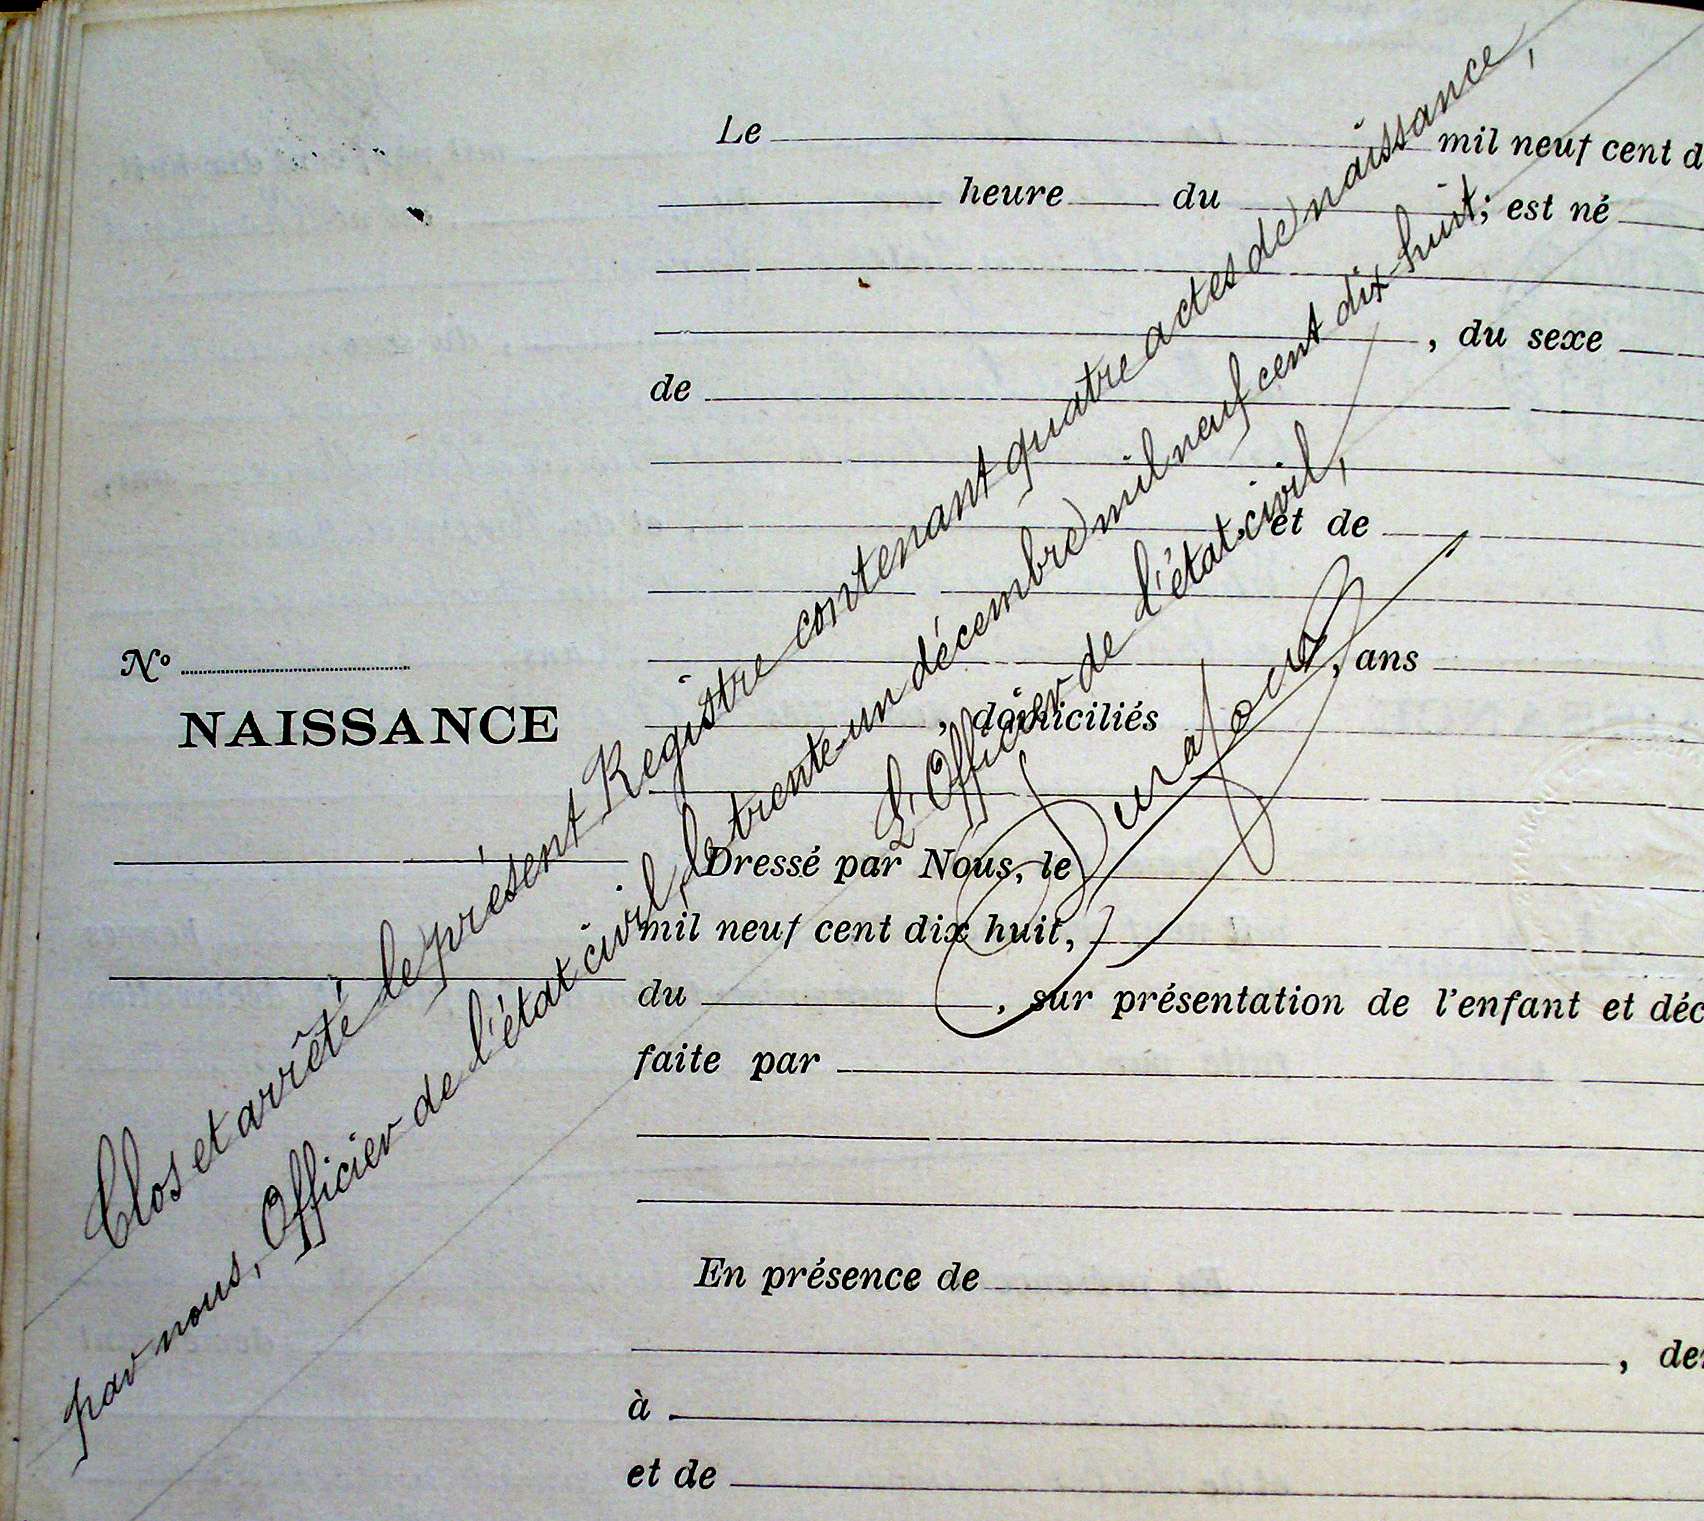 Le mil neuf cent d
heure du ; est né
, du sexe
de
et de
, ans
, domiciliés
N°
NAISSANCE
Dressé par Nous, le
mil neuf cent dix huit,
du , sur présentation de l'enfant et déc
faite par
En présence de
, de
à
et de
Clos et arrêté le présent Registre contenant quatre actes de naissance,
par nous, Officier de l'état civil, le trente-un décembre mil neuf cent dix-huit,
L'Officier de l'état civil,